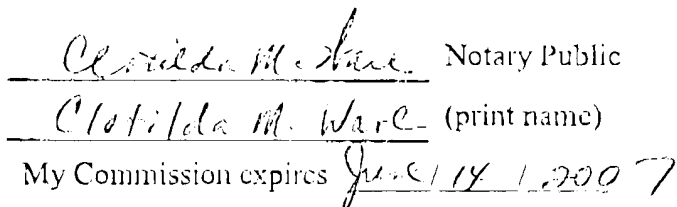 Clotilda M. Ware Notary Public
Clotilda M. Ware (print name)
My Commission expires June 14, 2007